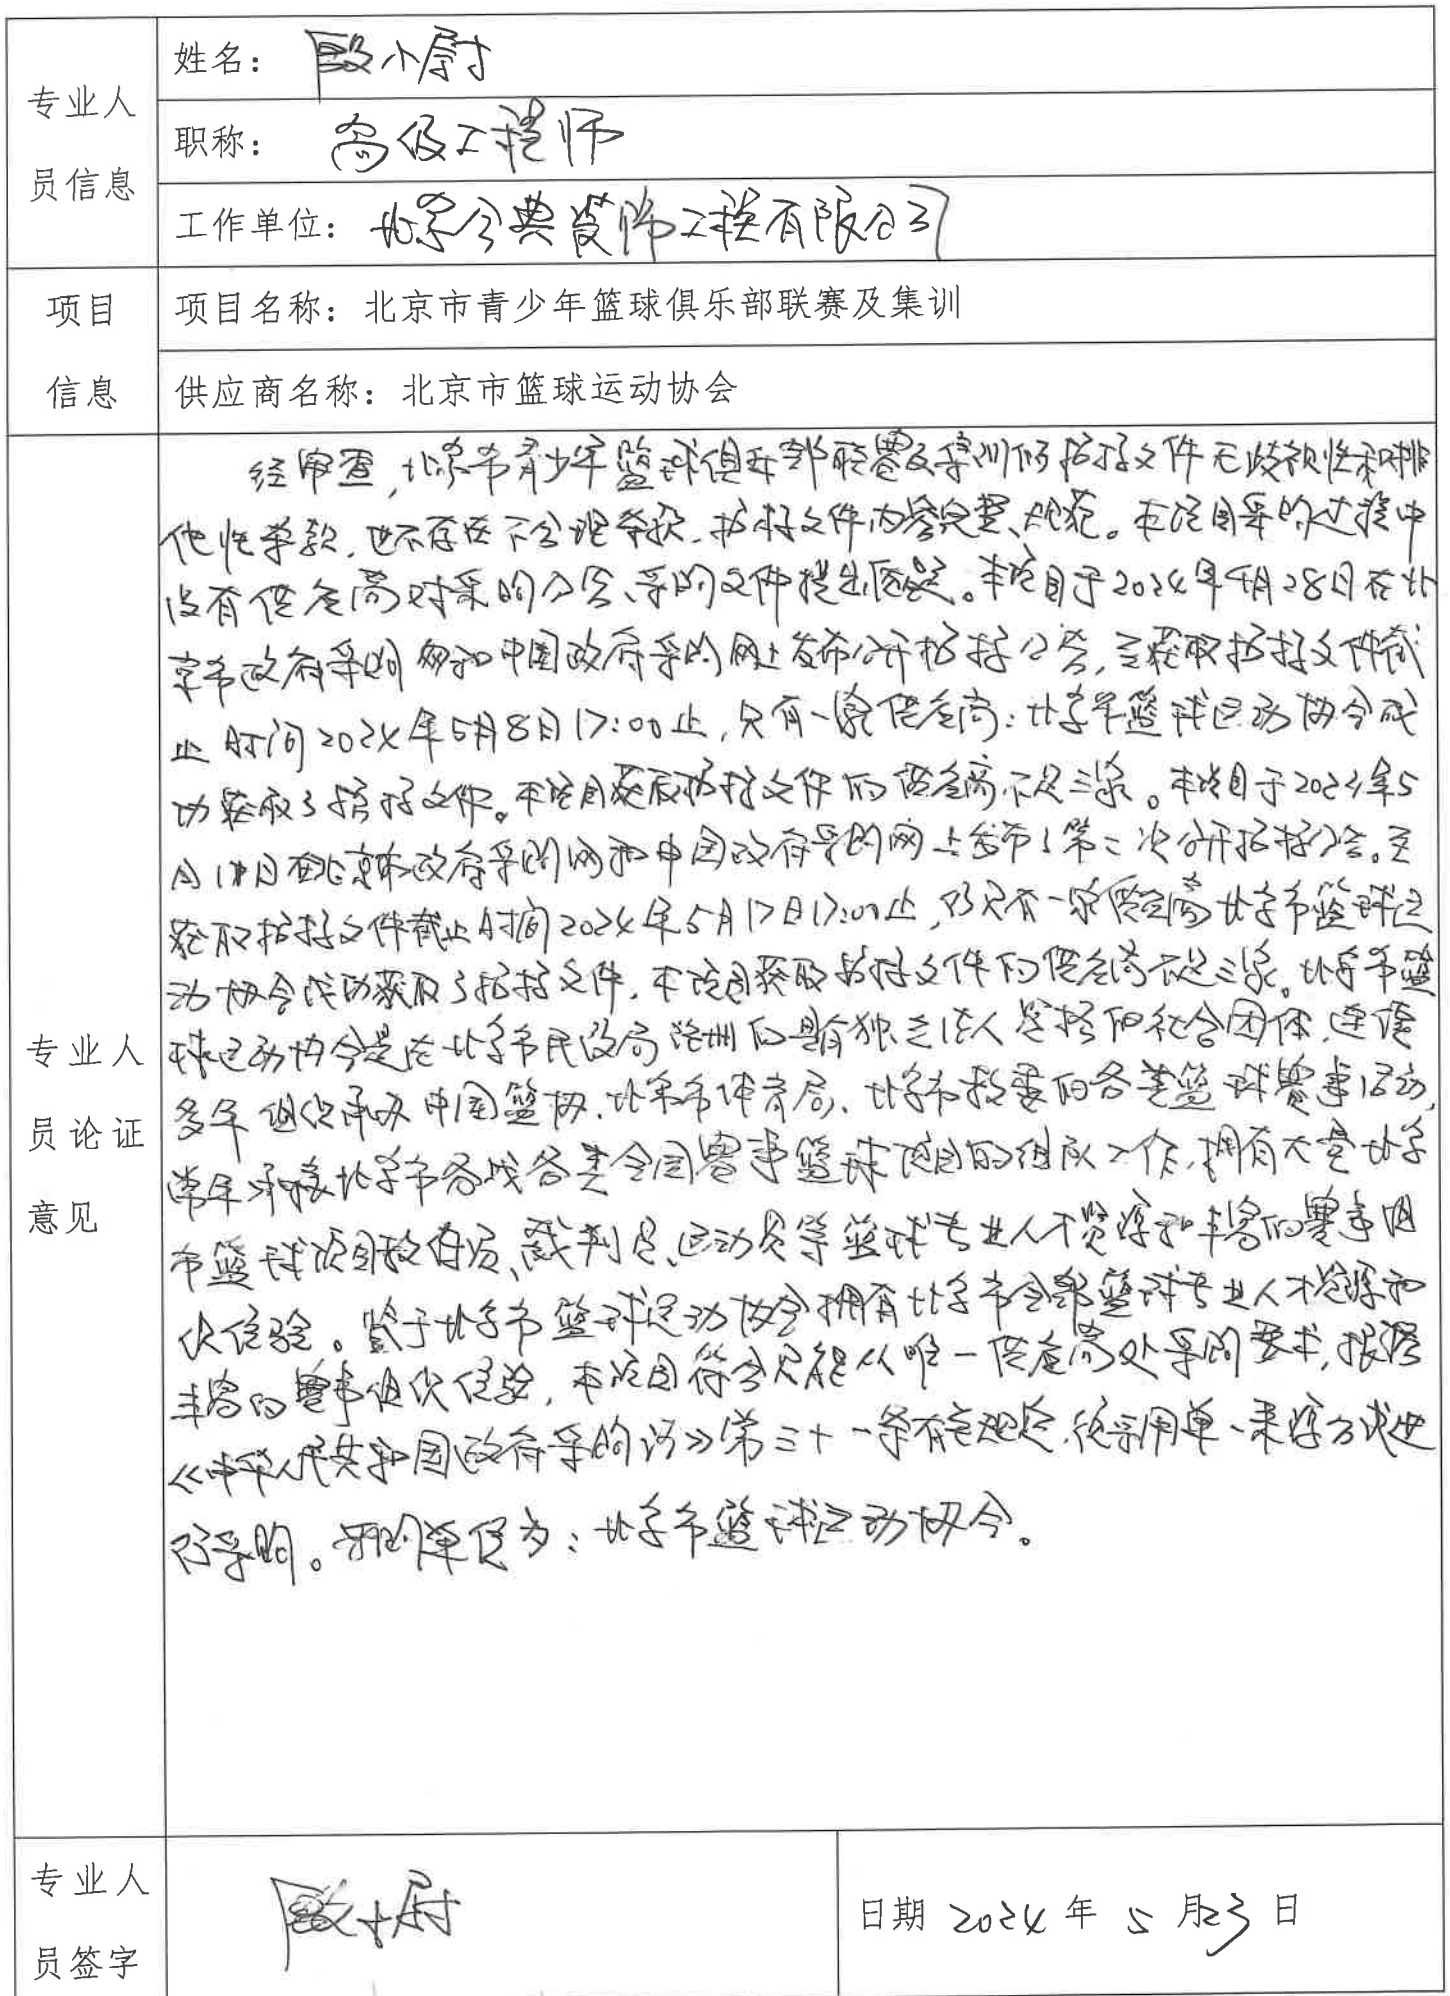 专业人
员信息
姓名：殷小尉
职称：高级工程师
工作单位：北京今典装饰工程有限公司
项目
信息
项目名称：北京市青少年篮球俱乐部联赛及集训
供应商名称：北京市篮球运动协会
专业人
员论证
意见
经审查，北京市青少年篮球俱乐部联赛及集训的招标文件无歧视性和排
他性条款，也不存在不合理条款，招标文件内容完整、规范。本项目采购过程中
没有供应商对采购公告、采购文件提出质疑。本项目于2024年4月28日在北
京市政府采购网和中国政府采购网上发布公开招标公告，至获取招标文件截
止时间2024年5月8日17:00止，只有一家供应商：北京市篮球运动协会成
功获取了招标文件。本项目获取招标文件的供应商不足三家。本项目于2024年5
月 日在北京市政府采购网和中国政府采购网上发布了第二次公开招标公告。至
获取招标文件截止时间2024年5月17日17:00止，仍只有一家供应商北京市篮球运
动协会成功获取了招标文件，本项目获取招标文件的供应商不足三家。北京市篮
球运动协会是在北京市民政局注册的具有独立法人资格的社会团体，连续
多年组织承办中国篮协、北京市体育局、北京市教委的各类篮球赛事活动，
常年承接北京市备战各类全国赛事篮球项目的组队工作，拥有大量北京
市篮球项目教练员、裁判员、运动员等篮球专业人才资源和丰富的赛事组
织经验。鉴于北京市篮球运动协会拥有北京市全部篮球专业人才资源和
丰富的赛事组织经验，本项目符合只能从唯一供应商处采购要求，根据
《中华人民共和国政府采购法》第三十一条有关规定，拟采用单一来源方式进
行采购。采购单位为：北京市篮球运动协会。
专业人
员签字
殷小尉
日期 2024 年 5 月 23 日